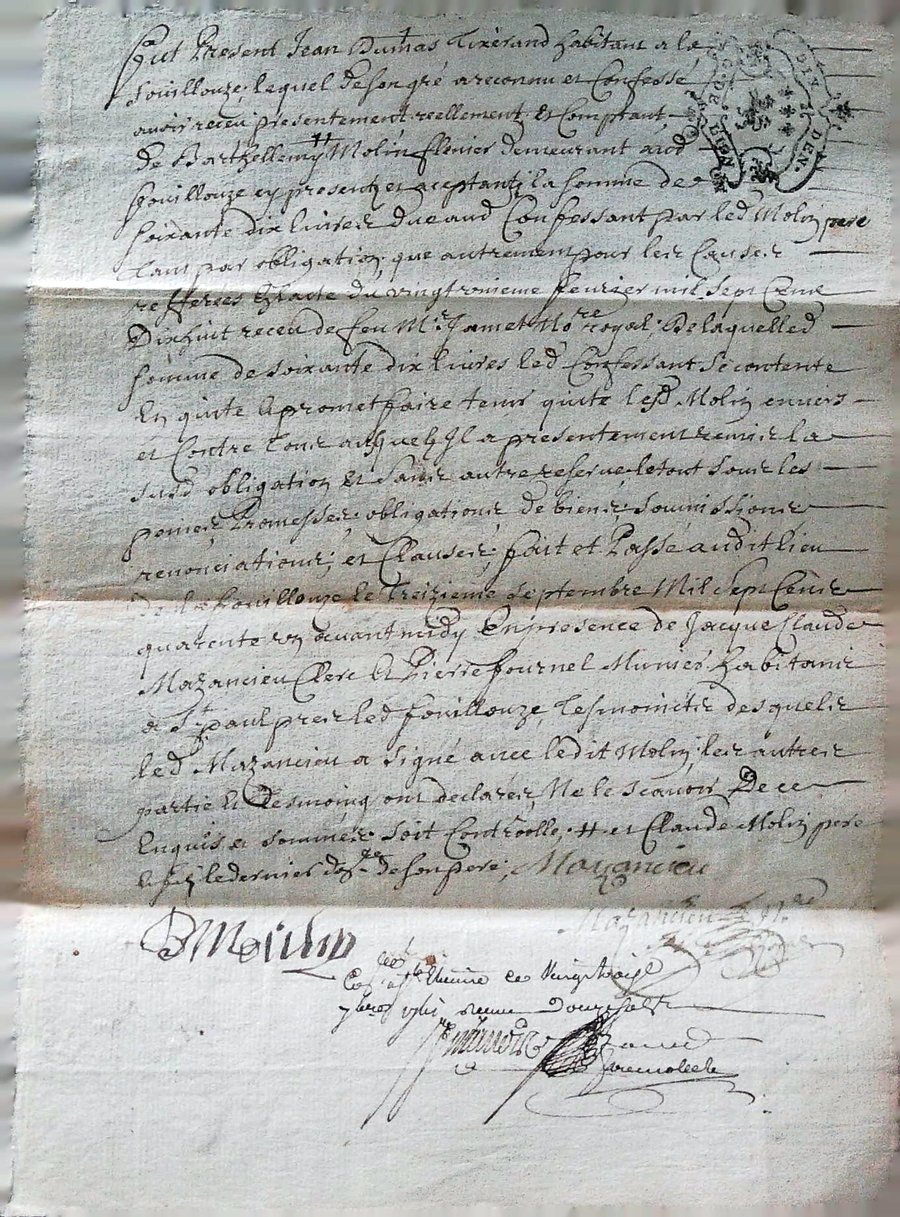 Fut Present Jean Dumas Tixerand habitant a la
fouillouze, lequel de son gré a reconnu et Confessé
avoir receu presentement reellement et Comptant
de Barthellemy Molin demeurant aud
fouillouze cy present et aceptant, la somme de
soixante dix livres deue aud Confessant par led Molin pere
tant par obligation que autrement pour les Causes
refferées en Lacte du vingtroisieme fevrier mil sept Cent
Dixhuit receu de feu Mr Jamet No.re royal, De laquelle d
somme de soixante dix livres led Confessant se contente
En quite & promet faire tenir quite lesd Molin envers
et Contre tous ausquels Il a presentement remis la
susd obligation Et sans autre reserve, le tout sous les
peines, Promesses, obligations de biens, soumissions
renonciations, et Clauses, fait et Passé audit lieu
De la fouillouze Le Treizieme Septembre Mil Sept Cent
quarente un avant midy En presence de Jacque Claude
Mazancieu Clerc Et Pierre fournel Munier habitans
a St paul pres led fouillouze, Tesmoins desquels
led Mazancieu a signé avec ledit Molin, les autres
partie Et Tesmoing ont declarés Ne le scavoir De ce
Enquis et sommés. soit Controolle, # et Claude Molin pere
le dernier de son pere, Mazancieu
Mazancieu N.re
BMolin
a St Etienne ce Vingt
7bre 1741 receu Douze sols